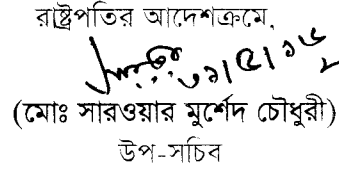 রাষ্ট্রপতির আদেশক্রমে,
৩১/৫/১৫
(মোঃ সারওয়ার মুর্শেদ চৌধুরী)
উপ-সচিব